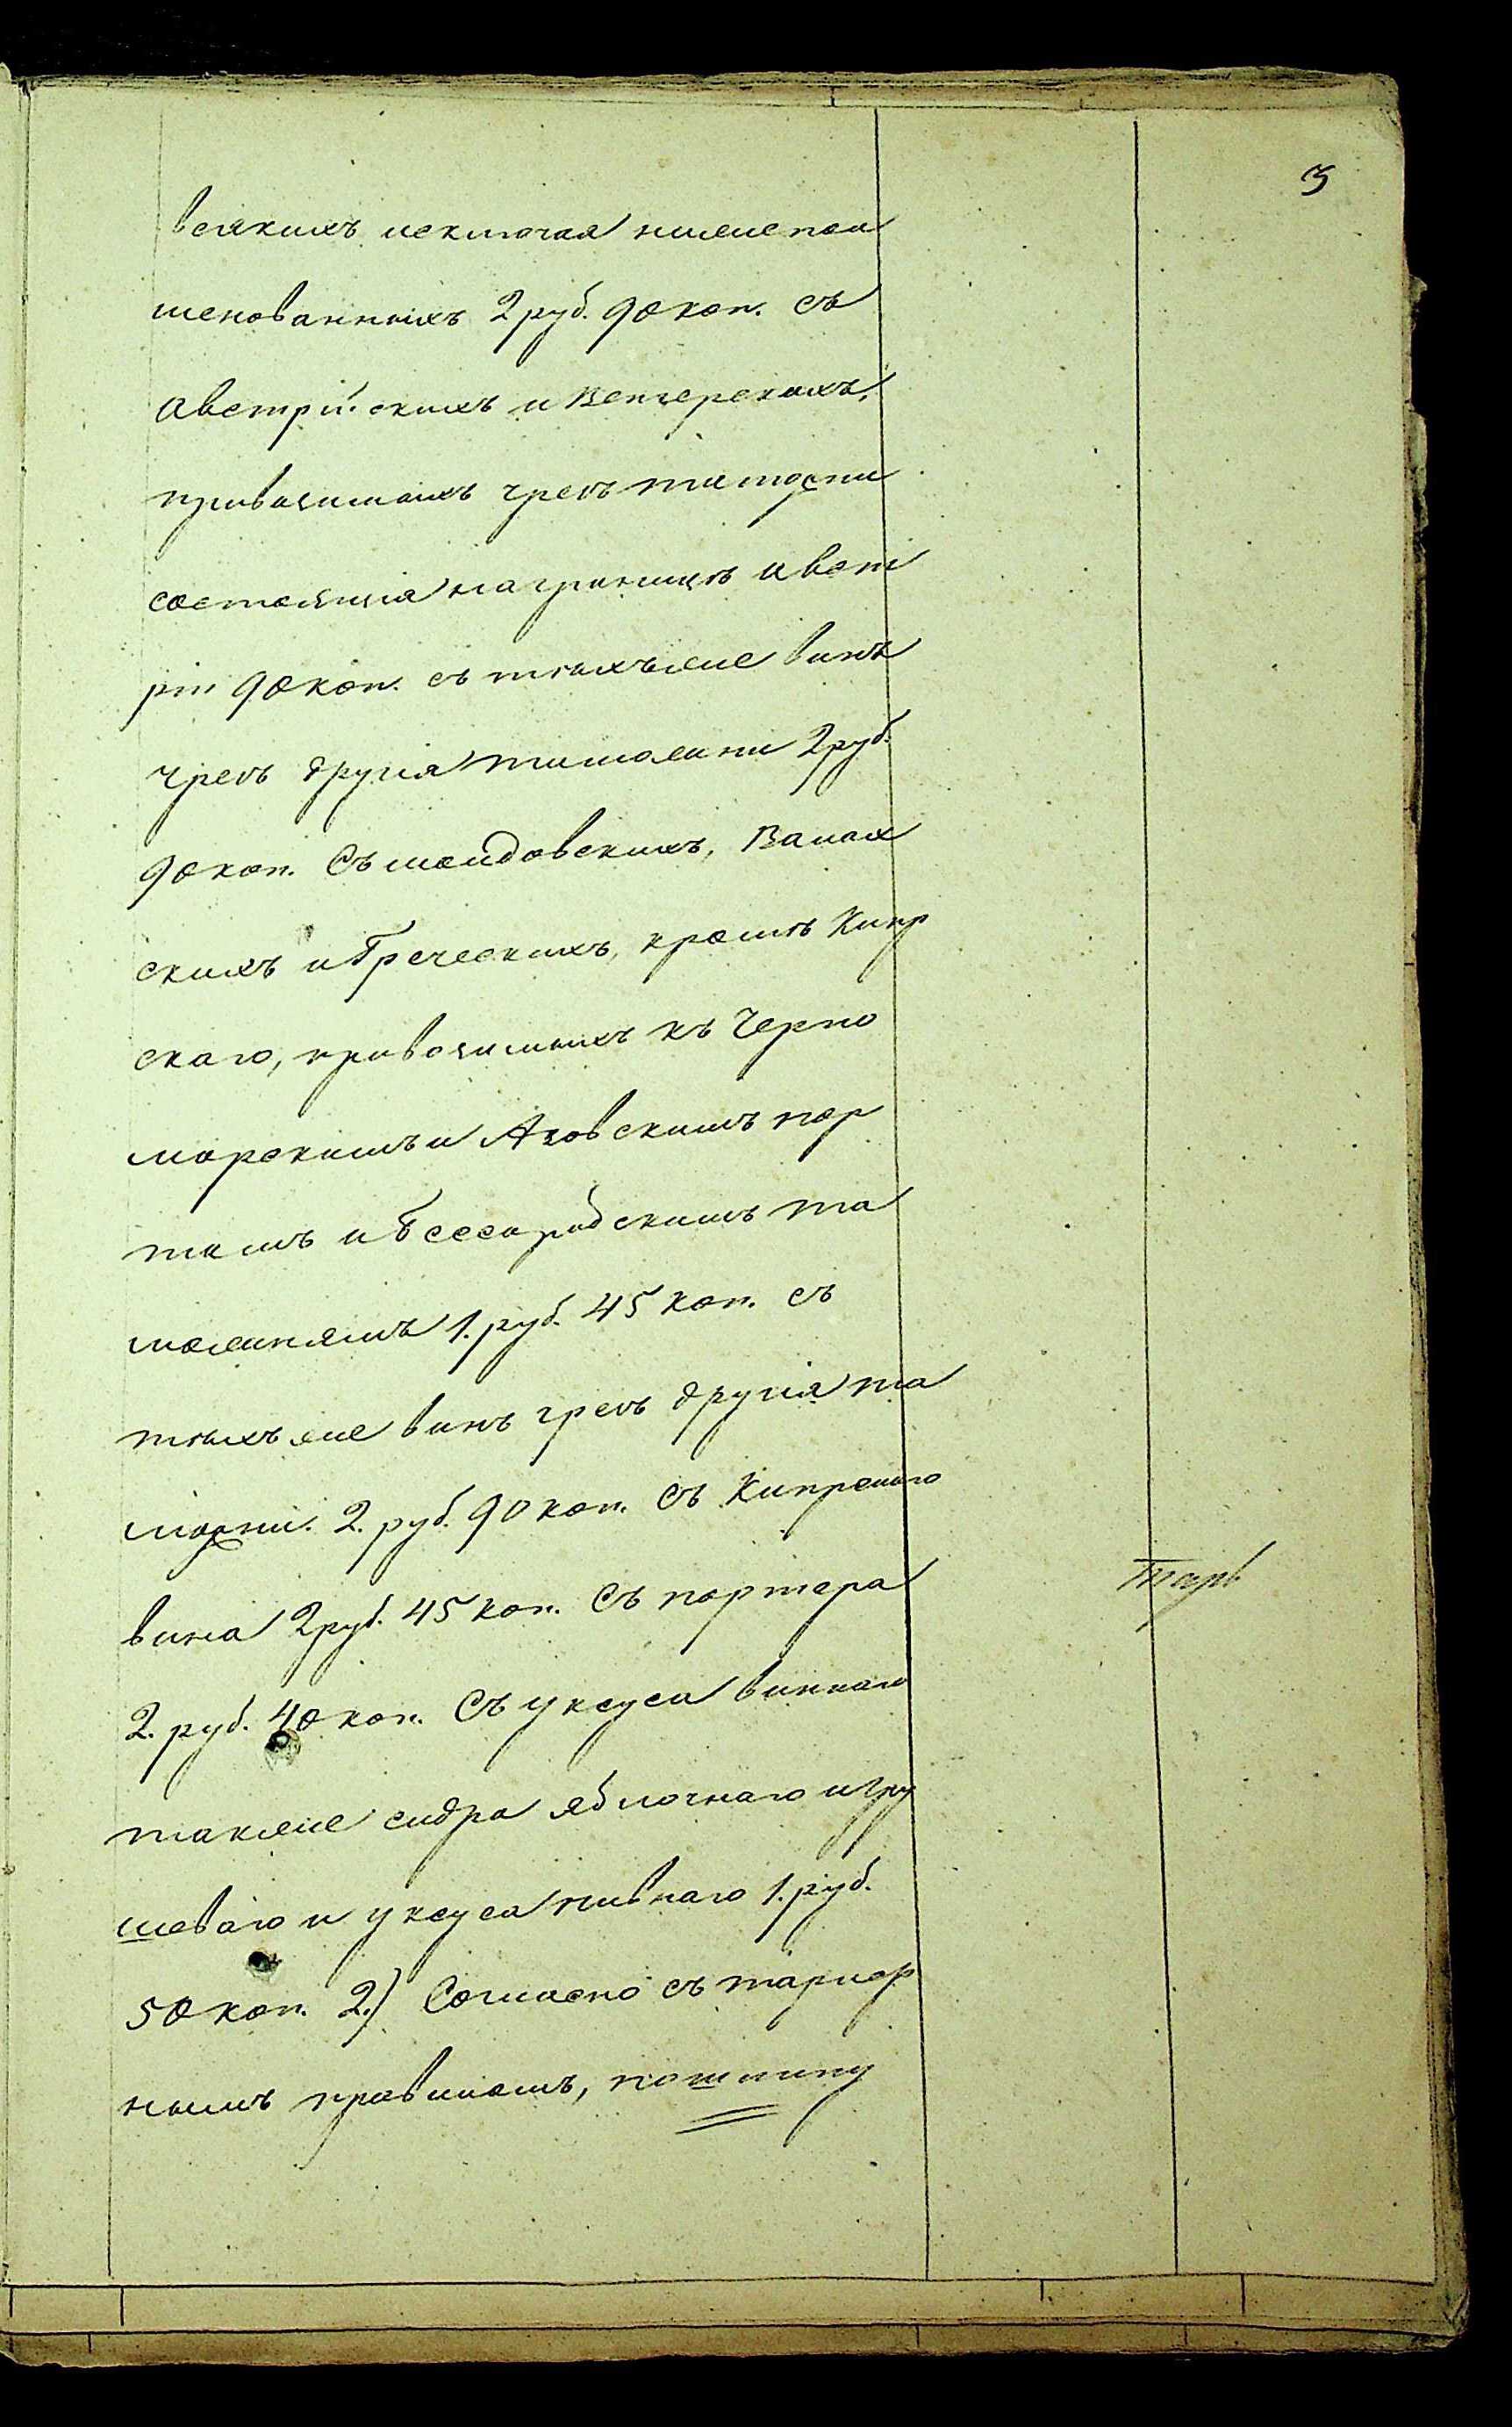 3
всякихъ исключая нижепои
менованныхъ 2 руб. 90 коп. съ
Австрiйскихъ и Венгерскихъ,
привозимыхъ чрезъ таможни
состоящiя на границѣ Авст
рiи 90 коп. съ тѣхъ же винъ
чрезъ другiя таможни 2 руб.
90 коп. Съ молдовскихъ, Валах
скихъ и Греческихъ, кромѣ Кипр
скаго, привозимыхъ къ Черно
морскимъ и Азовскимъ пор
тамъ и Бессарабскимъ та
можнямъ 1. руб. 45 коп. съ
тѣхъ же винъ чрезъ другiя та
можни. 2. руб. 90 коп. Съ Кипрскаго
вина 2 руб. 45 коп. Съ портера
2. руб. 40 коп. Съ уксуса виннаго
также сидра яблочнаго и гру
шеваго и уксуса пивнаго 1. руб.
50 коп. 2.) Согласно съ тариф
нымъ правиламъ, пошлину